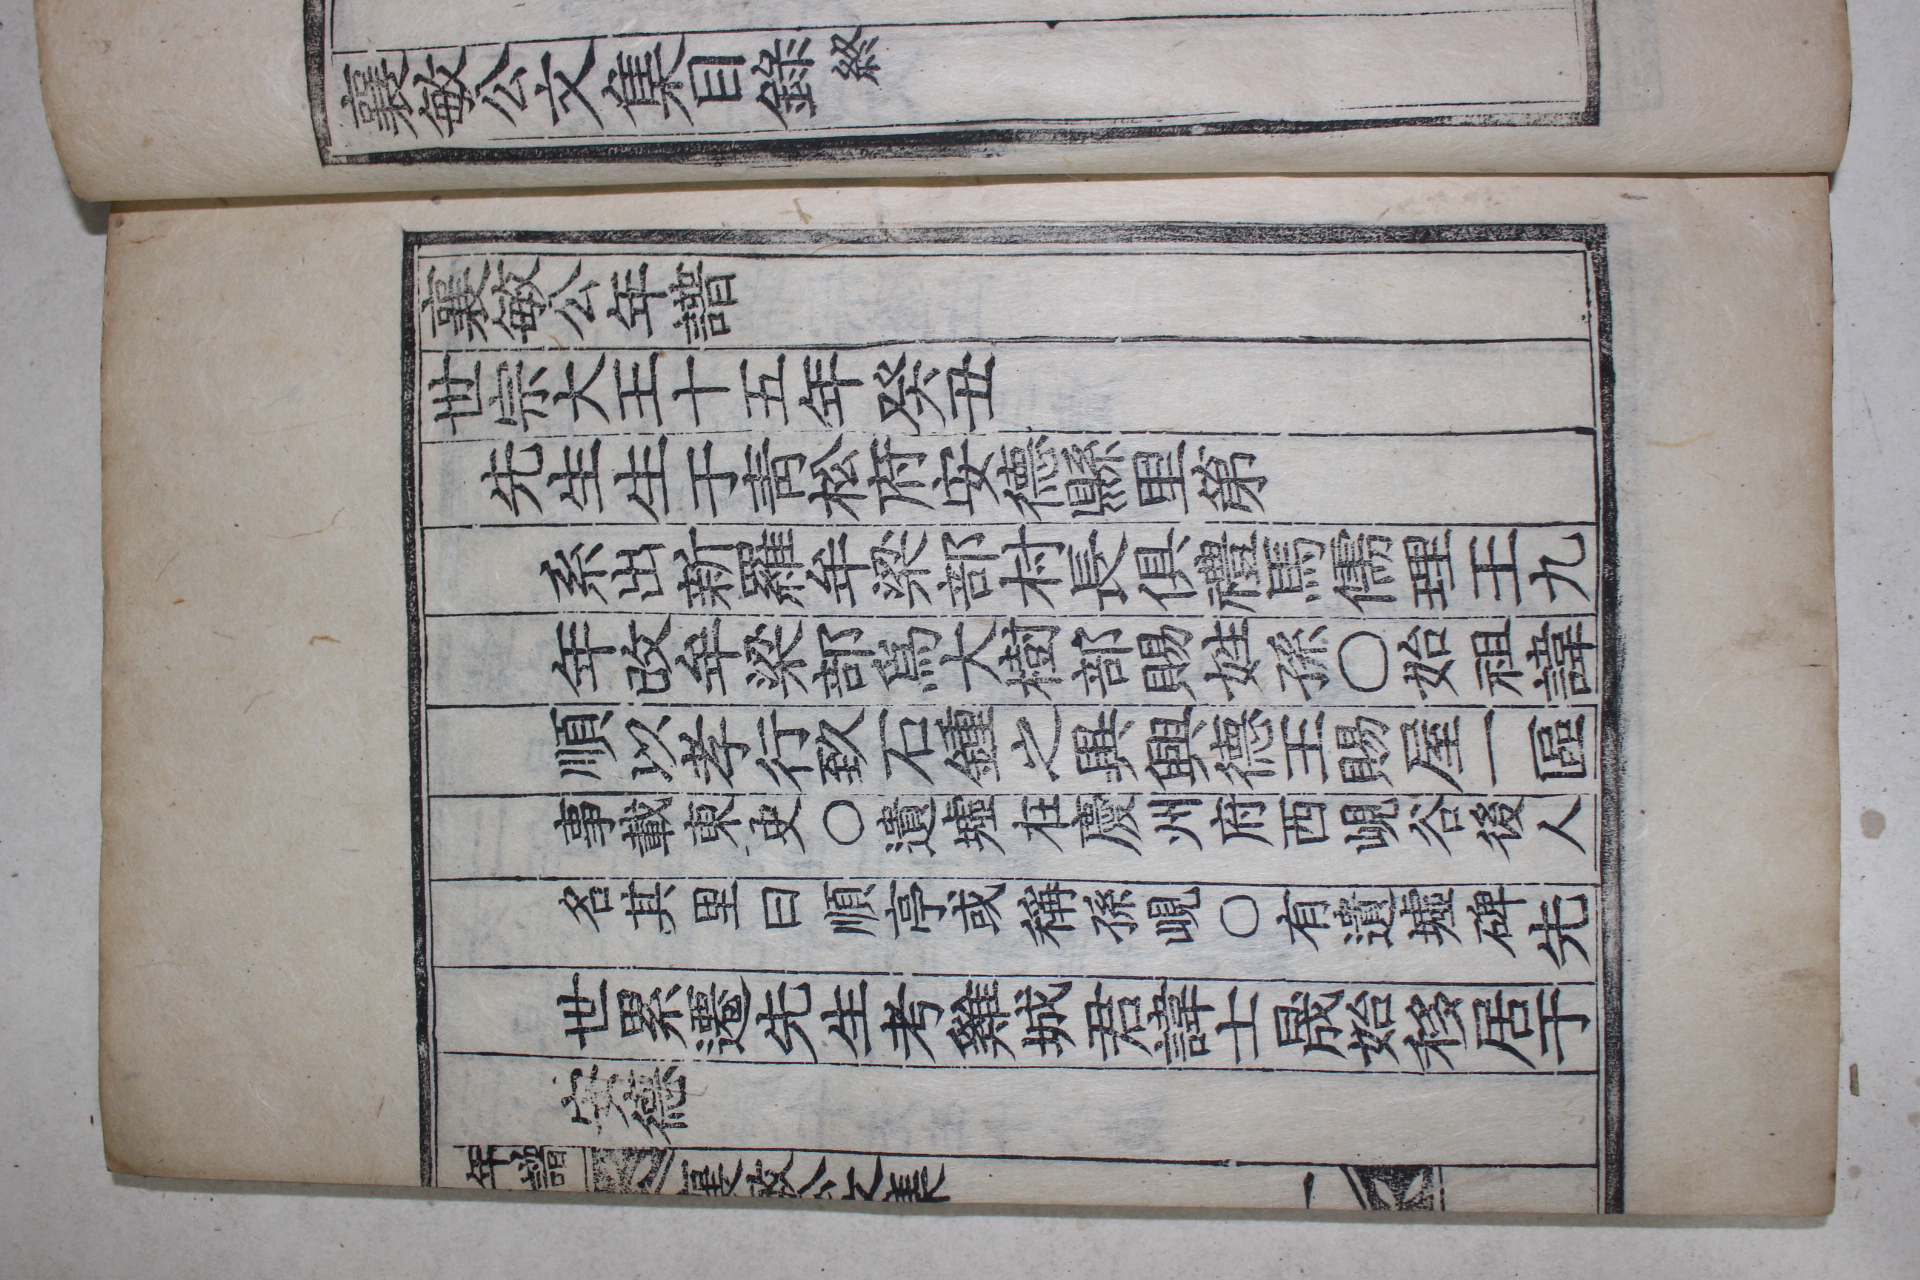 襄敏公文集目錄終
襄敏公年譜
世宗大王十五年癸丑
先生生于青松府安德縣里第
系出新羅牟梁部村長俱禮馬儒理王九
年改牟梁部爲大樹部賜姓孫○始祖諱
順以孝行致石鍾之異興德王賜屋一區
事載東史○遺墟在慶州府西峴谷後人
名其里曰順亭或稱孫峴○有遺墟碑先
世累遷先生考雞城君諱士晟始移居于
安德
年譜 襄敏公文集 一